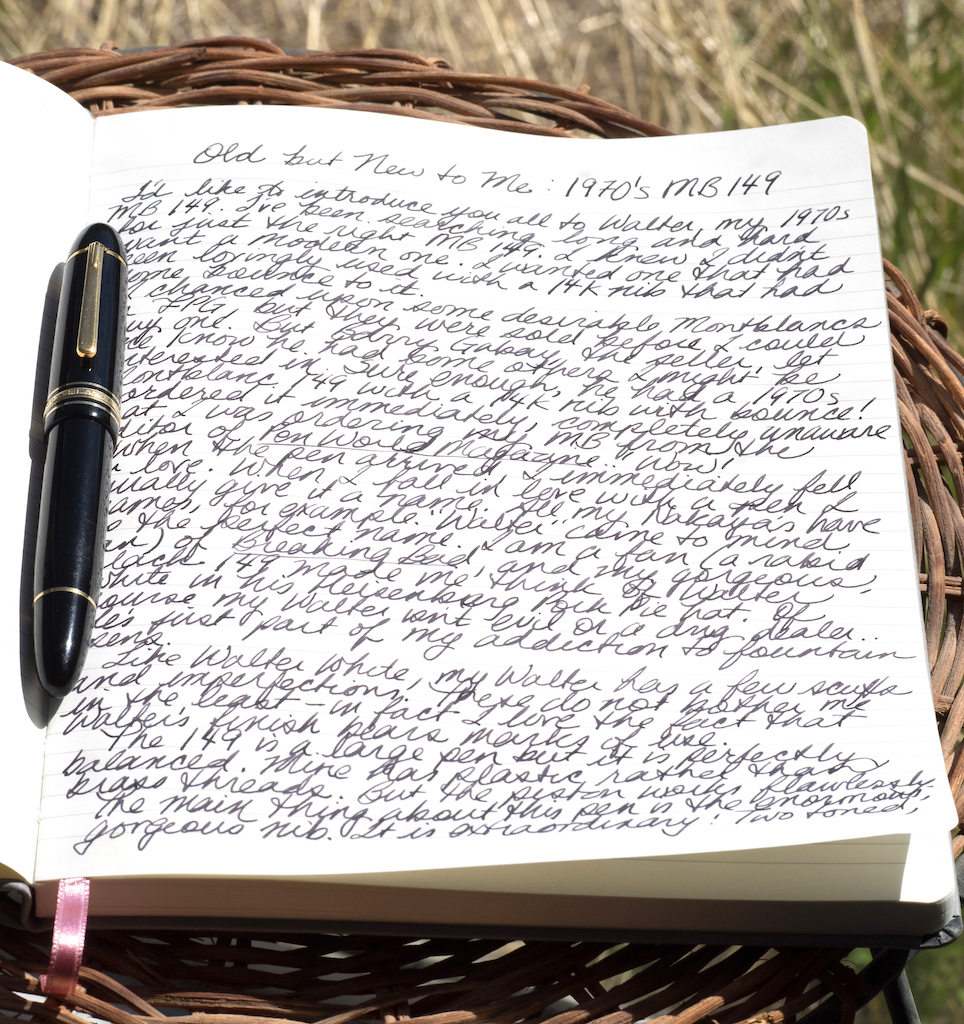 Old but New to Me: 1970's MB 149
I'd like to introduce you all to Walter, my 1970s
MB 149. I've been searching long and hard
for just the right MB 149. I knew I didn't
want a modern one. I wanted one that had
been lovingly used with a 14K nib that had
some bounce to it.
I chanced upon some desirable Montblancs
FPG but they were sold before I could
buy one. But Barry Gabay, the seller, let
me know he had some others I might be
interested in. Sure enough, he had a 1970s
Montblanc 149 with a 14K nib with bounce!
ordered it immediately, completely unaware
at I was ordering my MB from the
ditor of Pen World Magazine. Wow!
when the pen arrived I immediately fell
love. When I fall in love with a pen I
ually give it a name. All my Nakayas have
ames, for example. "Walter" came to mind
s the perfect name. I am a fan (a rabid
an) of Breaking Bad, and my gorgeous,
black 149 made me think of Walter
White in his Heisenberg Pork Pie hat. Of
ourse my Walter isn't evil or a drug dealer..
e's just part of my addiction to fountain
sens.
Like Walter White, my Walter has a few scuffs
and imperfections. These do not bother me
in the least - in fact I love the fact that
Walter's finish bears marks of use.
The 149 is a large pen but it is perfectly
balanced. Mine has plastic rather than
brass threads. But the piston works flawlessly.
The main thing about this pen is the enormous,
gorgeous nib. It is extraordinary! Two toned,